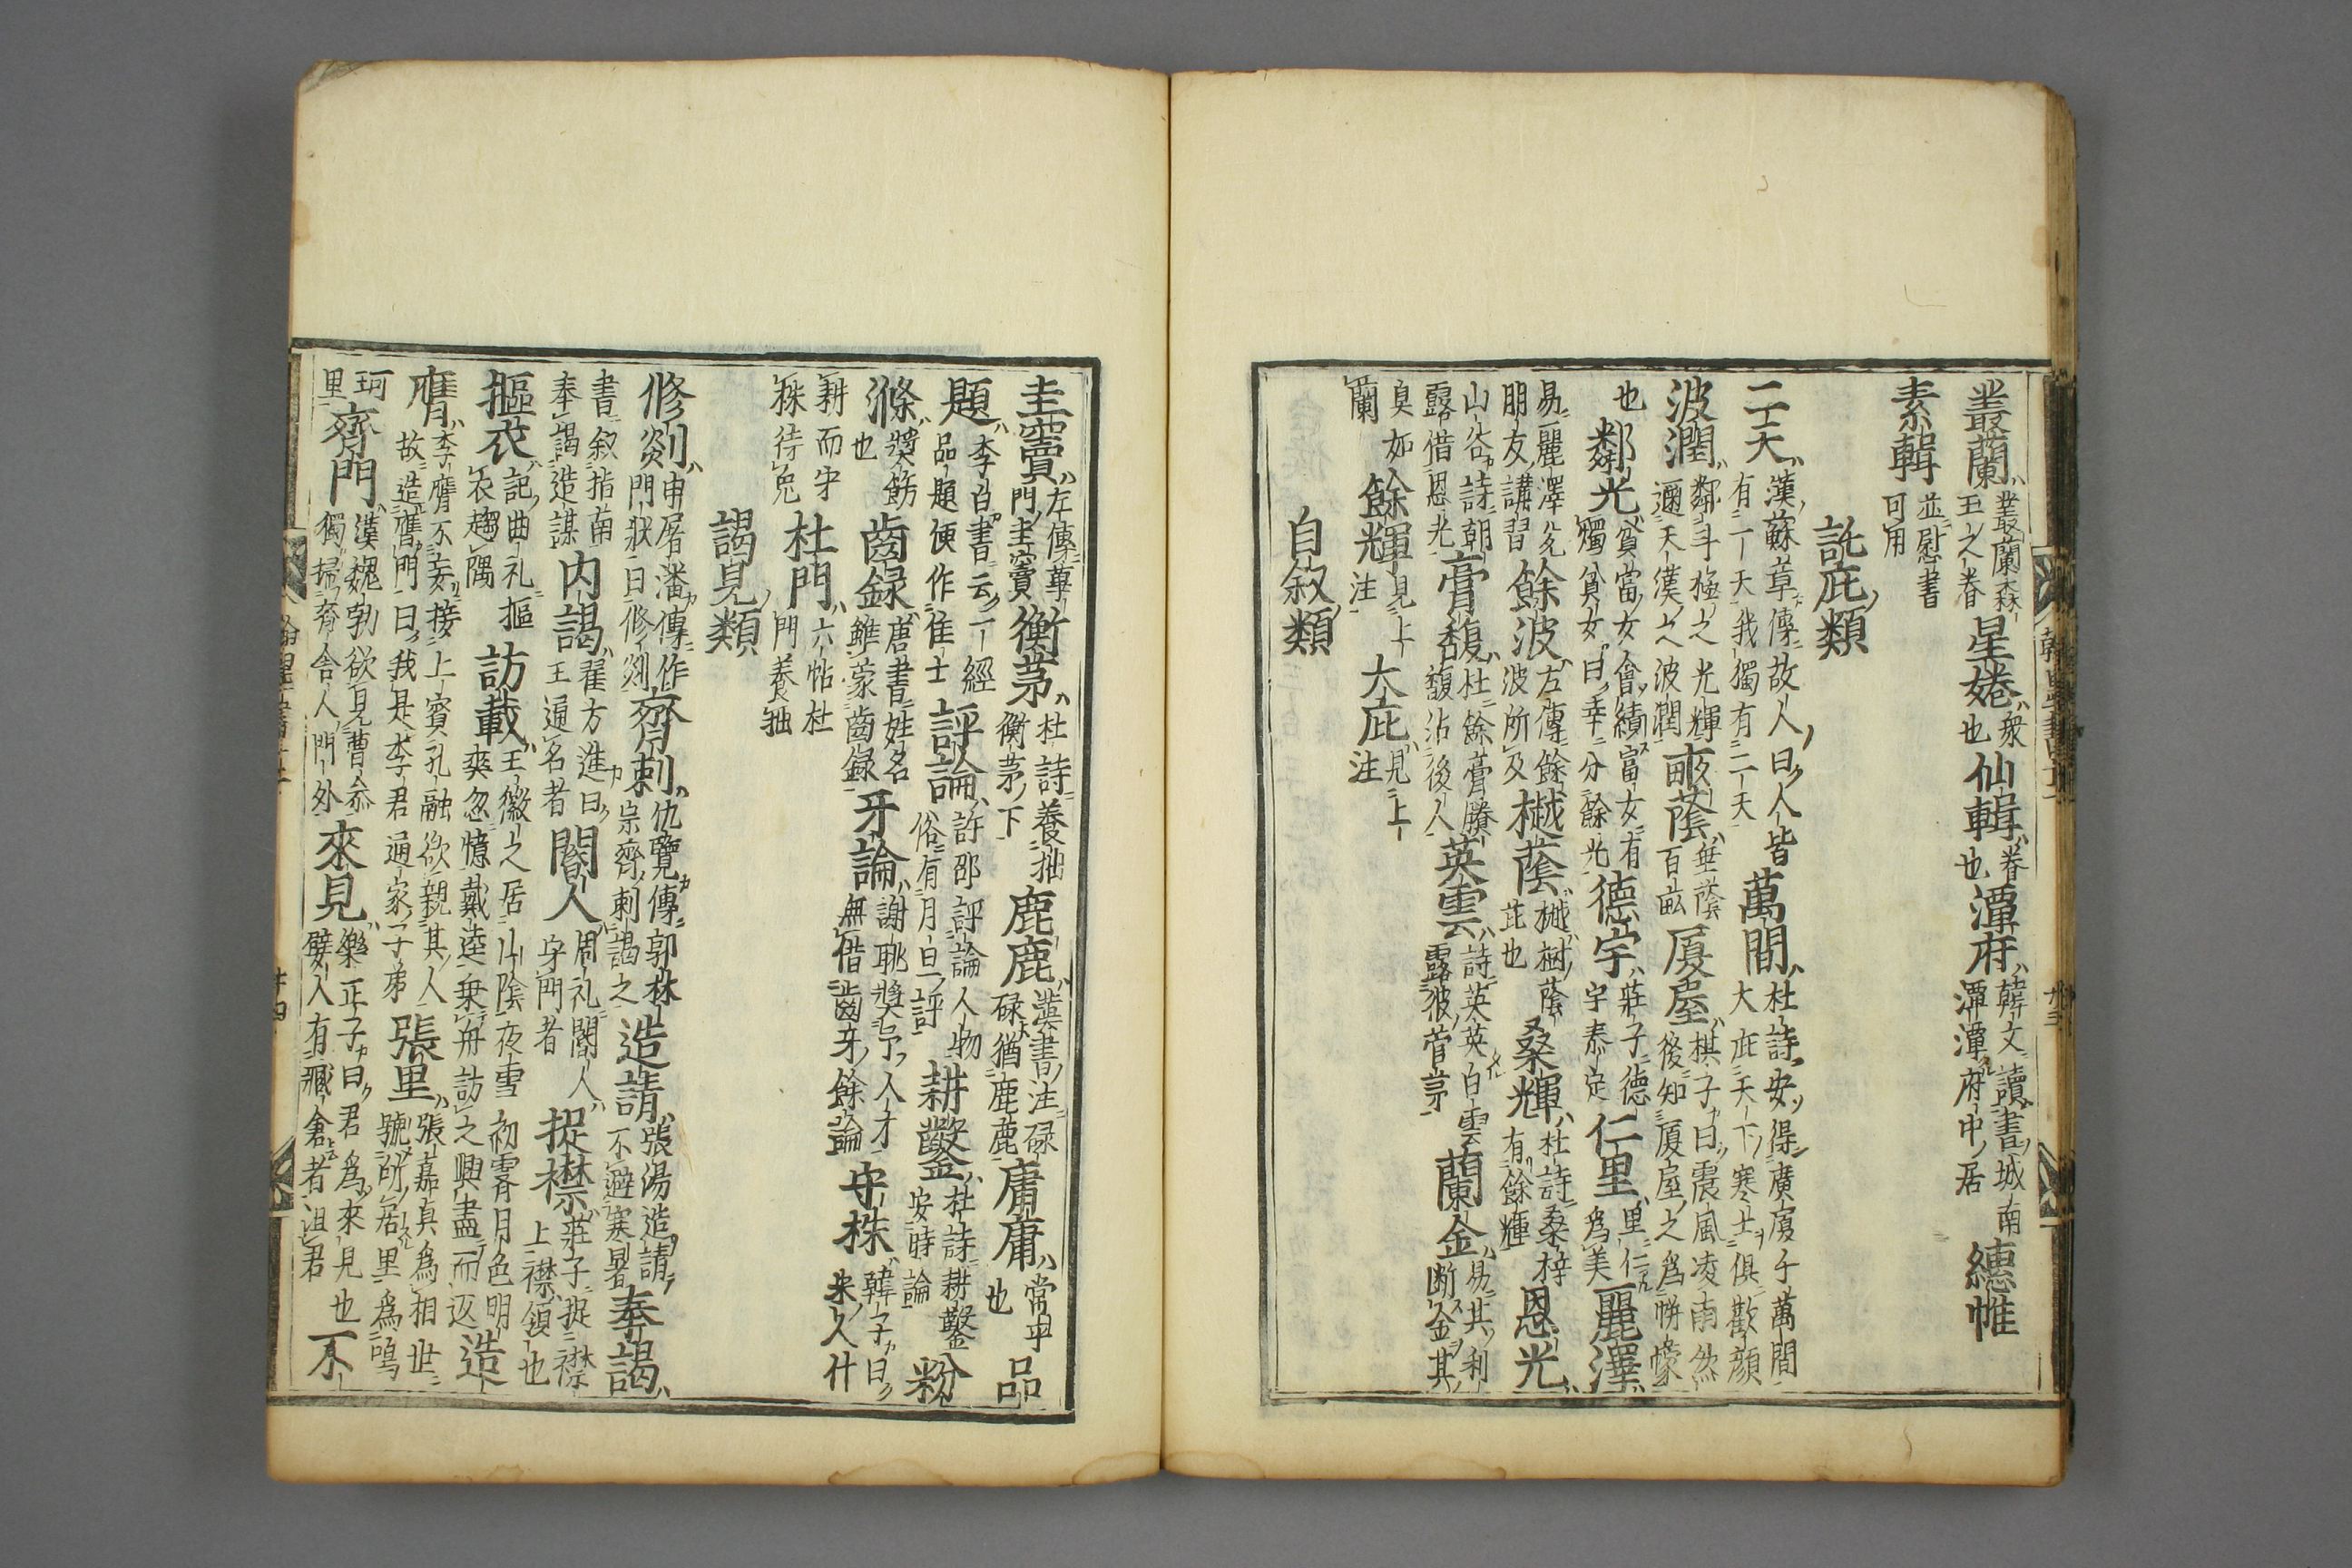 叢蘭叢蘭森王之眷星婘衆也仙輯眷也潭府韓文讀書城南潭潭府中居繐帷
素輯並慰書可用
託庇類
二天漢蘇章傳故人曰人皆有一天我獨有二天萬間杜詩安得廣廈千萬間大庇天下寒士俱歡顔
波潤鄰斗極之光輝邇天漢之波潤畝蔭垂蔭百畝厦屋棋子曰震風凌雨然後知厦屋之爲帡幪
也鄰光貧富女會績富女有燭貧女曰幸分餘光德宇莊子德宇泰定仁里里仁爲美麗澤
易麗澤兌朋友講習餘波左傳餘波所及樾蔭樾樹蔭芘也桑輝杜詩桑梓有餘輝恩光
山谷詩朝露借恩光膏馥杜餘膏賸馥沾後人英雲詩英英白雲露彼菅茅蘭金易其利断金其
臭如蘭餘輝見上注大庇見上注
自叙類
圭竇左傳蓽門圭竇衡茅杜詩養拙衡茅下鹿鹿漢書注碌碌猶鹿鹿庸庸常也品
題李白書云一經品題便作佳士評論許邵評論人物俗有月旦評耕鑿杜詩耕鑿安時論粉
滌奬飾也齒録唐書姓名雖蒙齒録牙論謝朓奬予人才無惜齒牙餘論守株韓子曰宋人什
耕而守株待兔杜門六帖杜門養拙
謁見類
修剡申屠潘傳作門狀曰修剡齊刺仇覽傳郭林宗齊刺謁之造請張湯造請不避寒暑奉謁
書叙指南奉謁造謀内謁翟方進曰王遍名者閽人周礼閽人守門者捉襟莊子捉襟上襟領也
摳衣記曲礼摳衣趨隅訪戴王徽之居山陰夜雪初霽月色明爽忽憶戴逵乗舟訪之興盡而返造
膺李膺不妄接上賓孔融欲親其人故造膺門曰我是李君通家子弟張里張嘉貞爲相世號所居里爲鳴
珂里齊門漢魏勃欲見曹參獨掃齊舍人門外來見樂正子曰君爲來見也嬖人有臧倉者沮君不